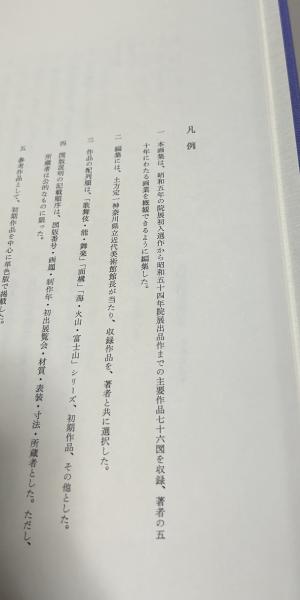 凡例
一 本画集は、昭和五年の院展初入選作から昭和五十四年院展出品作までの主要作品七十六図を収録、著者の五
十年にわたる画業を概観できるように編集した。
二 編集には、土方定一神奈川県立近代美術館館長が当たり、収録作品を、著者と共に選択した。
三 作品の配列順は、「歌舞伎・能・舞楽」「面構」「海・火山・富士山」シリーズ、初期作品、その他とした。
四 図版説明の記載順序は、図版番号・画題・制作年・初出展覧会・材質・表装・寸法・所蔵者とした。ただし、
所蔵者は公的なものに限った。
五 参考作品として、初期作品を中心に単色版で掲載した。